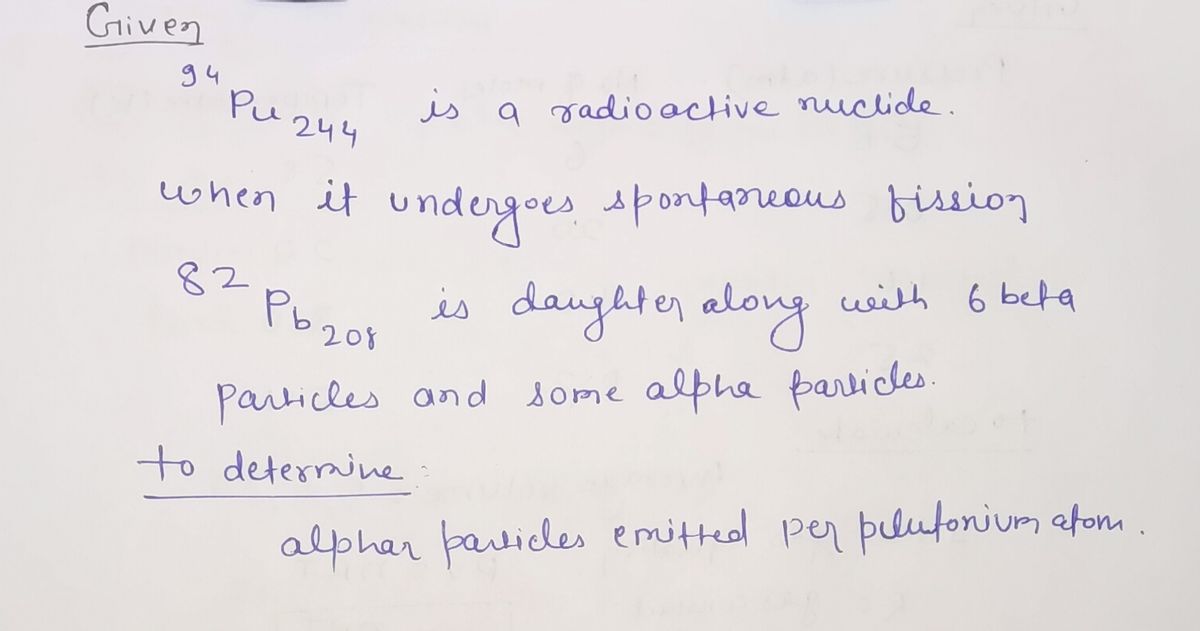 Given
94
Pu 244 is a radioactive nuclide.
when it undergoes spontaneous fission
82
Pb 208 is daughter along with 6 beta
particles and some alpha particles.
to determine :
alphar particles emitted per pelutonium atom.